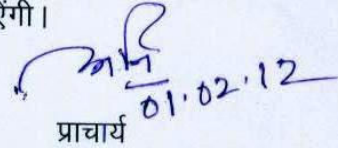 ऐंगी।
01.02.12
प्राचार्य